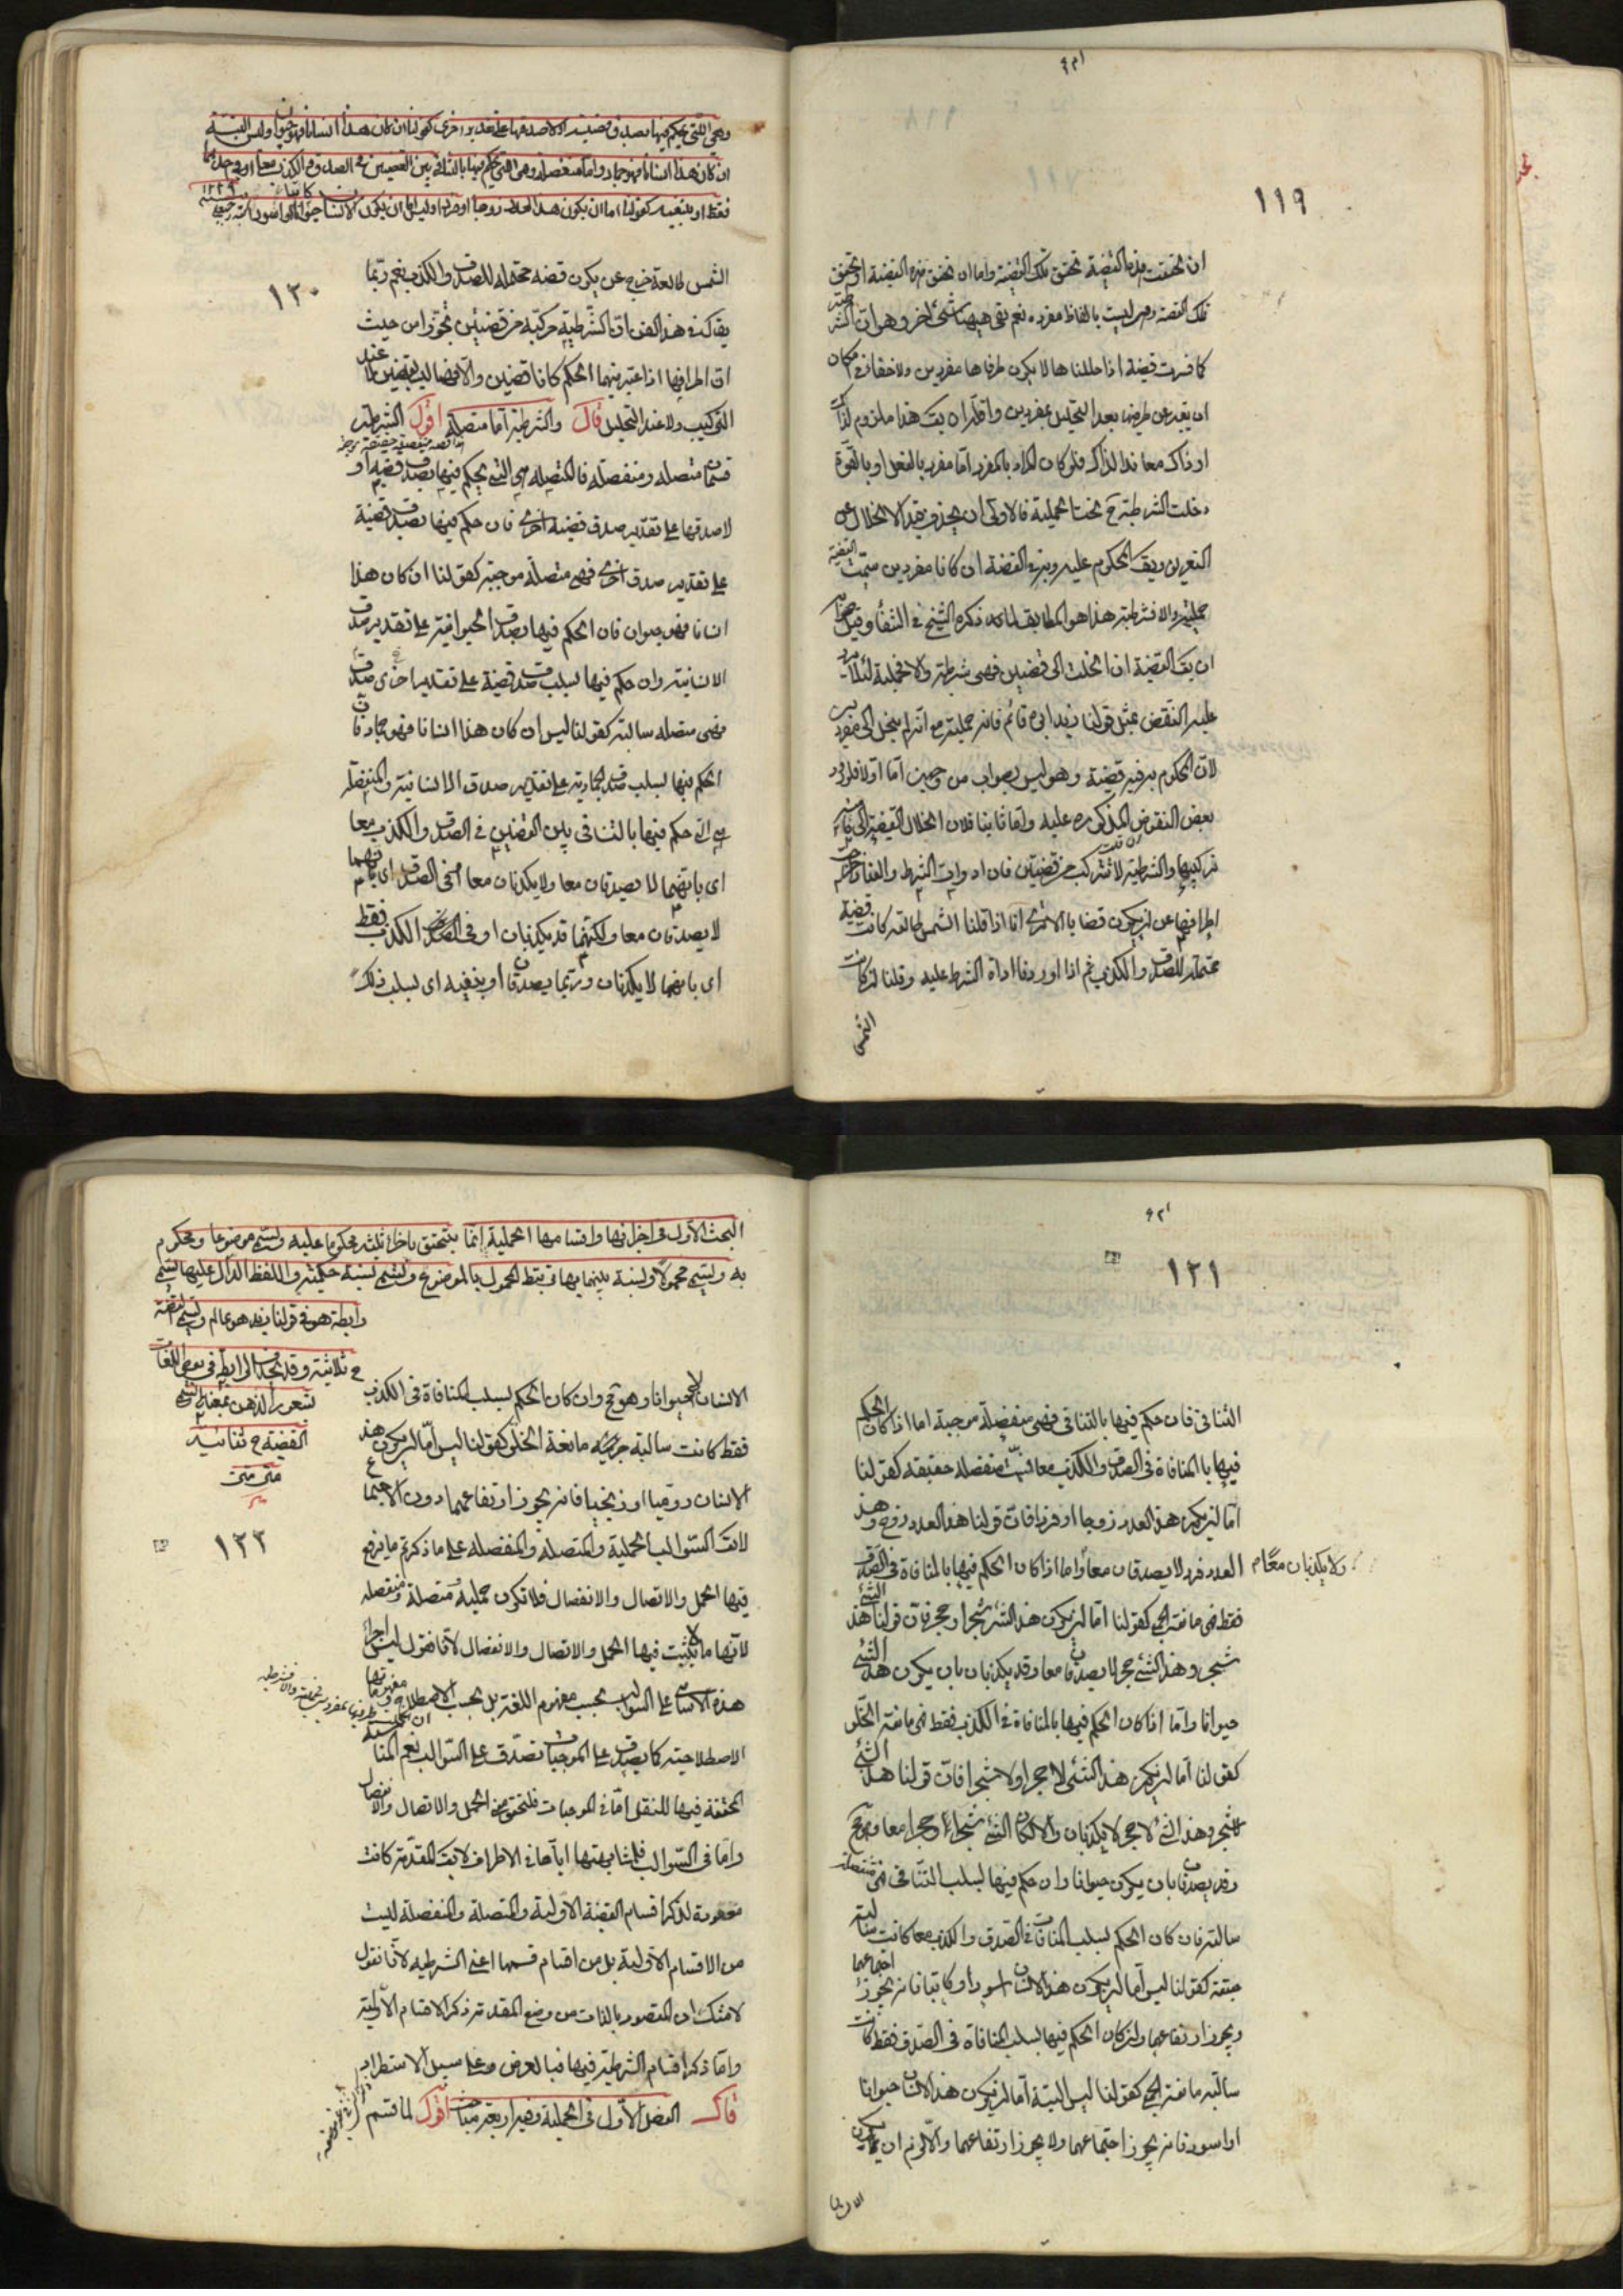 ١١٩
ان تحققت هذه القضية تحقق تلك القضية واما ان تحقق هذه القضية او تحقق
تلك القضية وهى ليست بالفاظ مفردة نعم بقى ههنا شئ اخر وهو ان الشرطية
كما فسرت قضية اذا حللناها لا يكون طرفاها مفردين ولا خفاء فى امكان
ان يعبر عن طرفيها بعد التحليل بمفردين واقله ان يقال هذا ملزوم لذلك
او ذاك معاند لذاك فلو كان المراد بالمفرد اما مفرد بالفعل او بالقوة
دخلت الشرطية تحت الحملية فالاولى ان يحذف قيد الانحلال عن
التعريف ويقال المحكوم عليه وبه فى القضية ان كانا مفردين سميت القضية
حملية والا فشرطية هذا هو المطابق لما ذكره الشيخ فى الشفا وقيل صوابه
ان يقال القضية ان انحلت الى قضيتين فهى شرطية والا فحملية لئلا يرد
عليه النقض بمثل قولنا زيد ابوه قائم فانه حملية مع انه لم ينحل الى مفردين
لان المحكوم به فيه قضية وهو ليس بصواب من وجهين اما اولا فلورود
بعض النقوض المذكورة عليه واما ثانيا فلان انحلال القضية الى ما منه
تركيبها والشرطية لا تتركب من قضيتين فان ادوات الشرط والعناد اخرجت
اطرافها عن ان يكون قضايا الا ترى انا اذا قلنا الشمس طالعة كانت قضية
محتملة للصدق والكذب ثم اذا اوردنا اداة الشرط عليه وقلنا ان كانت
الشمس
وهى التى يحكم فيها بصدق قضية او لا صدقها على تقدير اخرى كقولنا ان كان هذا انسانا فهو حيوان وليس البتة
ان كان هذا انسانا فهو جماد واما منفصلة وهى التى يحكم فيها بالتنافى بين القضيتين فى الصدق والكذب معا او فى احدهما
فقط او بنفيه كقولنا اما ان يكون هذا العدد زوجا او فردا وليس اما ان يكون الانسان حيوانا او اسود
١٢٠
الشمس طالعة خرج عن ان يكون قضية محتملة للصدق والكذب نعم ربما
يقال فى هذا الفن ان الشرطية مركبة من قضيتين تجوزا من حيث
ان اطرافها اذا اعتبر فيهما الحكم كانا قضيتين والا فهما ليستا بقضيتين لا عند
التركيب ولا عند التحليل قال والشرطية اما متصلة اقول الشرطية
قسمان متصلة ومنفصلة فالمتصلة هى التى يحكم فيها بصدق قضية او
لا صدقها على تقدير صدق قضية اخرى فان حكم فيها بصدق قضية
على تقدير صدق اخرى فهى متصلة موجبة كقولنا ان كان هذا
انسانا فهو حيوان فان الحكم فيها بصدق الحيوانية على تقدير صدق
الانسانية وان حكم فيها بسلب صدق قضية على تقدير اخرى صدق
فهى متصلة سالبة كقولنا ليس ان كان هذا انسانا فهو جماد فان
الحكم فيها بسلب صدق الجمادية على تقدير صدق الانسانية والمنفصلة
هى التى حكم فيها بالتنافى بين القضيتين فى الصدق والكذب معا
اى بانهما لا يصدقان معا ولا يكذبان معا او فى الصدق اى بانهما
لا يصدقان معا ولكنهما قد يكذبان او فى الكذب فقط
اى بانهما لا يكذبان وربما يصدقان او بنفيه اى بسلب ذلك
١٢١
التنافى فان حكم فيها بالتنافى فهى منفصلة موجبة اما اذا كان الحكم
فيها بالمنافاة فى الصدق والكذب معا سميت منفصلة حقيقة كقولنا
اما ان يكون هذا العدد زوجا او فردا فان قولنا هذا العدد زوج وهذا
العدد فرد لا يصدقان معا واما اذا كان الحكم فيها بالمنافاة فى الصدق
ولا يكذبان معا
فقط فهى مانعة الجمع كقولنا اما ان يكون هذا الشئ شجرا او حجرا فان قولنا هذا الشئ
شجر وهذا الشئ حجر لا يصدقان معا وقد يكذبان بان يكون هذا الشئ
حيوانا واما اذا كان الحكم فيها بالمنافاة فى الكذب فقط فهى مانعة الخلو
كقولنا اما ان يكون هذا الشئ لا حجرا او لا شجرا فان قولنا هذا الشئ
لا شجر وهذا الشئ لا حجر لا يكذبان والا لكان الشئ شجرا وحجرا معا وهو مح
وقد يصدقان بان يكون حيوانا وان حكم فيها بسلب التنافى فهى منفصلة
سالبة فان كان الحكم بسلب المنافاة فى الصدق والكذب معا كانت سالبة
حقيقة كقولنا ليس اما ان يكون هذا الانسان اسود او كاتبا فانه يجوز اجتماعهما
ويجوز ارتفاعهما وان كان الحكم فيها بسلب المنافاة فى الصدق فقط كانت
سالبة مانعة الجمع كقولنا ليس البتة اما ان يكون هذا الانسان حيوانا
او اسود فانه يجوز اجتماعهما ولا يجوز ارتفاعهما والا لزم ان يكون
البحث الاول فى اجزائها واقسامها الحملية انما يتحقق باجزاء ثلثة محكوما عليه ويسمى موضوعا ومحكوم
به ويسمى محمولا ونسبة بينهما بها يرتبط المحمول بالموضوع وتسمى نسبة حكمية واللفظ الدال عليها يسمى
رابطة هو فى قولنا زيد هو عالم ويسمى القضية
ح ثلاثية وقد يحذف الرابطة فى بعض اللغات
لشعور الذهن بمعناها ويسمى
القضية ح ثنائية
متن متن
١٢٢
الانسان لا حيوانا وهو مح وان كان الحكم بسلب المنافاة فى الكذب
فقط كانت سالبة مانعة الخلو كقولنا ليس اما ان يكون هذا
الانسان روميا او زنجيا فانه يجوز ارتفاعهما دون الاجتماع
لا يقال السوالب الحملية والمتصلة والمنفصلة على ما ذكرتم ما يرفع
فيها الحمل والاتصال والانفصال فلا تكون حملية ومتصلة ومنفصلة
لانها ما لا يثبت فيها الحمل والاتصال والانفصال لانا نقول ليس اجراء
هذه الاسامى على السوالب بحسب مفهوم اللغة بل بحسب الاصطلاح ومفهوماتها
الاصطلاحية كما يصدق على الموجبات تصدق على السوالب نعم المناسبة
المحققة فيها للنقل اما فى الموجبات فلتحقق معنى الحمل والاتصال والانفصال
واما فى السوالب فلمشابهتها اياها فى الاطراف لا يقال المقدمة كانت
معقودة لذكر اقسام القضية الاولية والمتصلة والمنفصلة ليست
من الاقسام الاولية بل من اقسام قسمها اعنى الشرطية لانا نقول
لا شك ان المقصود بالذات من وضع المقدمة ذكر الاقسام الاولية
واما ذكر اقسام الشرطية فيها فبالعرض وعلى سبيل الاستطراد
قال الفصل الاول فى الحملية وفيه اربعة مباحث اقول لما قسم